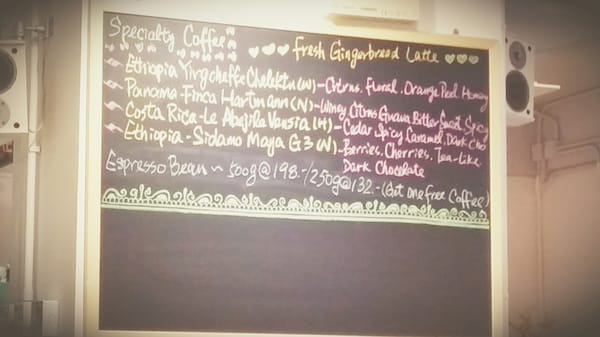 Specialty Coffee
Fresh Gingerbread Latte
Ethiopia Yirgcheffe Chelektu (W) - Citrus, Floral, Orange Peel, Honey
Panama - Finca Hartmann (N) - Winey Citrus Guava Bitter-Sweet Spicy
Costa Rica - Le Abejita Vensia (H) - Cedar Spicy Caramel, Dark Cho
Ethiopia - Sidamo Maya G3 (N) - Berries, Cherries, Tea-Like
Dark Chocolate
Espresso Bean ~ 500g@198.-/250g@132.- (Get one free Coffee)